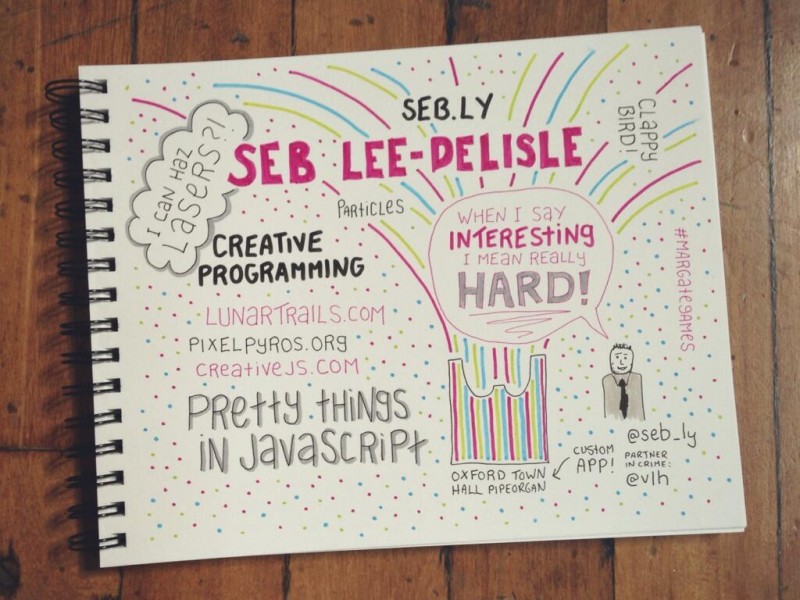 SEB.LY
SEB LEE-DELISLE
I CAN HAZ
LASERS?!
CLAPPY
BIRD!
PARTICLES
CREATIVE
PROGRAMMING
WHEN I SAY
INTERESTING
I MEAN REALLY
HARD!
#MARGATEGAMES
LUNARTRAILS.COM
PIXELPYROS.ORG
CREATIVEJS.COM
PRETTY THINGS
IN JAVASCRIPT
@seb_ly
PARTNER
IN CRIME:
@vlh
CUSTOM
APP!
OXFORD TOWN
HALL PIPEORGAN